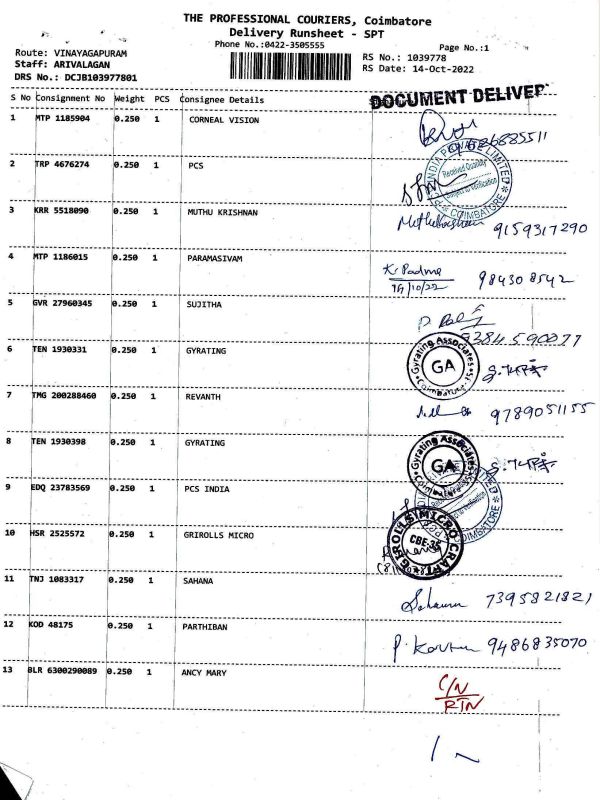 THE PROFESSIONAL COURIERS, Coimbatore
Delivery Runsheet - SPT
Phone No.:0422-3505555
Page No.:1
Route: VINAYAGAPURAM
RS No.: 1039778
Staff: ARIVALAGAN
RS Date: 14-Oct-2022
DRS No.: DCJB103977801
S No Consignment No Weight PCS Consignee Details
DOCUMENT DELIVER
1 MTP 1185904 0.250 1 CORNEAL VISION
2 TRP 4676274 0.250 1 PCS
INDIA PRIVATE LIMITED
Received Quantity
COIMBATORE
3 KRR 5518090 0.250 1 MUTHU KRISHNAN 9159317290
4 MTP 1186015 0.250 1 PARAMASIVAM Kr Padma 984308542
19/10/22
5 GVR 27960345 0.250 1 SUJITHA
9384590077
6 TEN 1930331 0.250 1 GYRATING
Gyrating Associates
GA
Coimbatore
7 TMG 200288460 0.250 1 REVANTH 9789051155
8 TEN 1930398 0.250 1 GYRATING
Gyrating Associates
GA
9 EDQ 23783569 0.250 1 PCS INDIA
COIMBATORE
10 HSR 2525572 0.250 1 GRIROLLS MICRO
GIROLLS MICRO CRAFT
CBE-35
11 TNJ 1083317 0.250 1 SAHANA Sahana 7395821821
12 KOD 48175 0.250 1 PARTHIBAN 9486835070
13 BLR 6300290089 0.250 1 ANCY MARY C/N
RTN